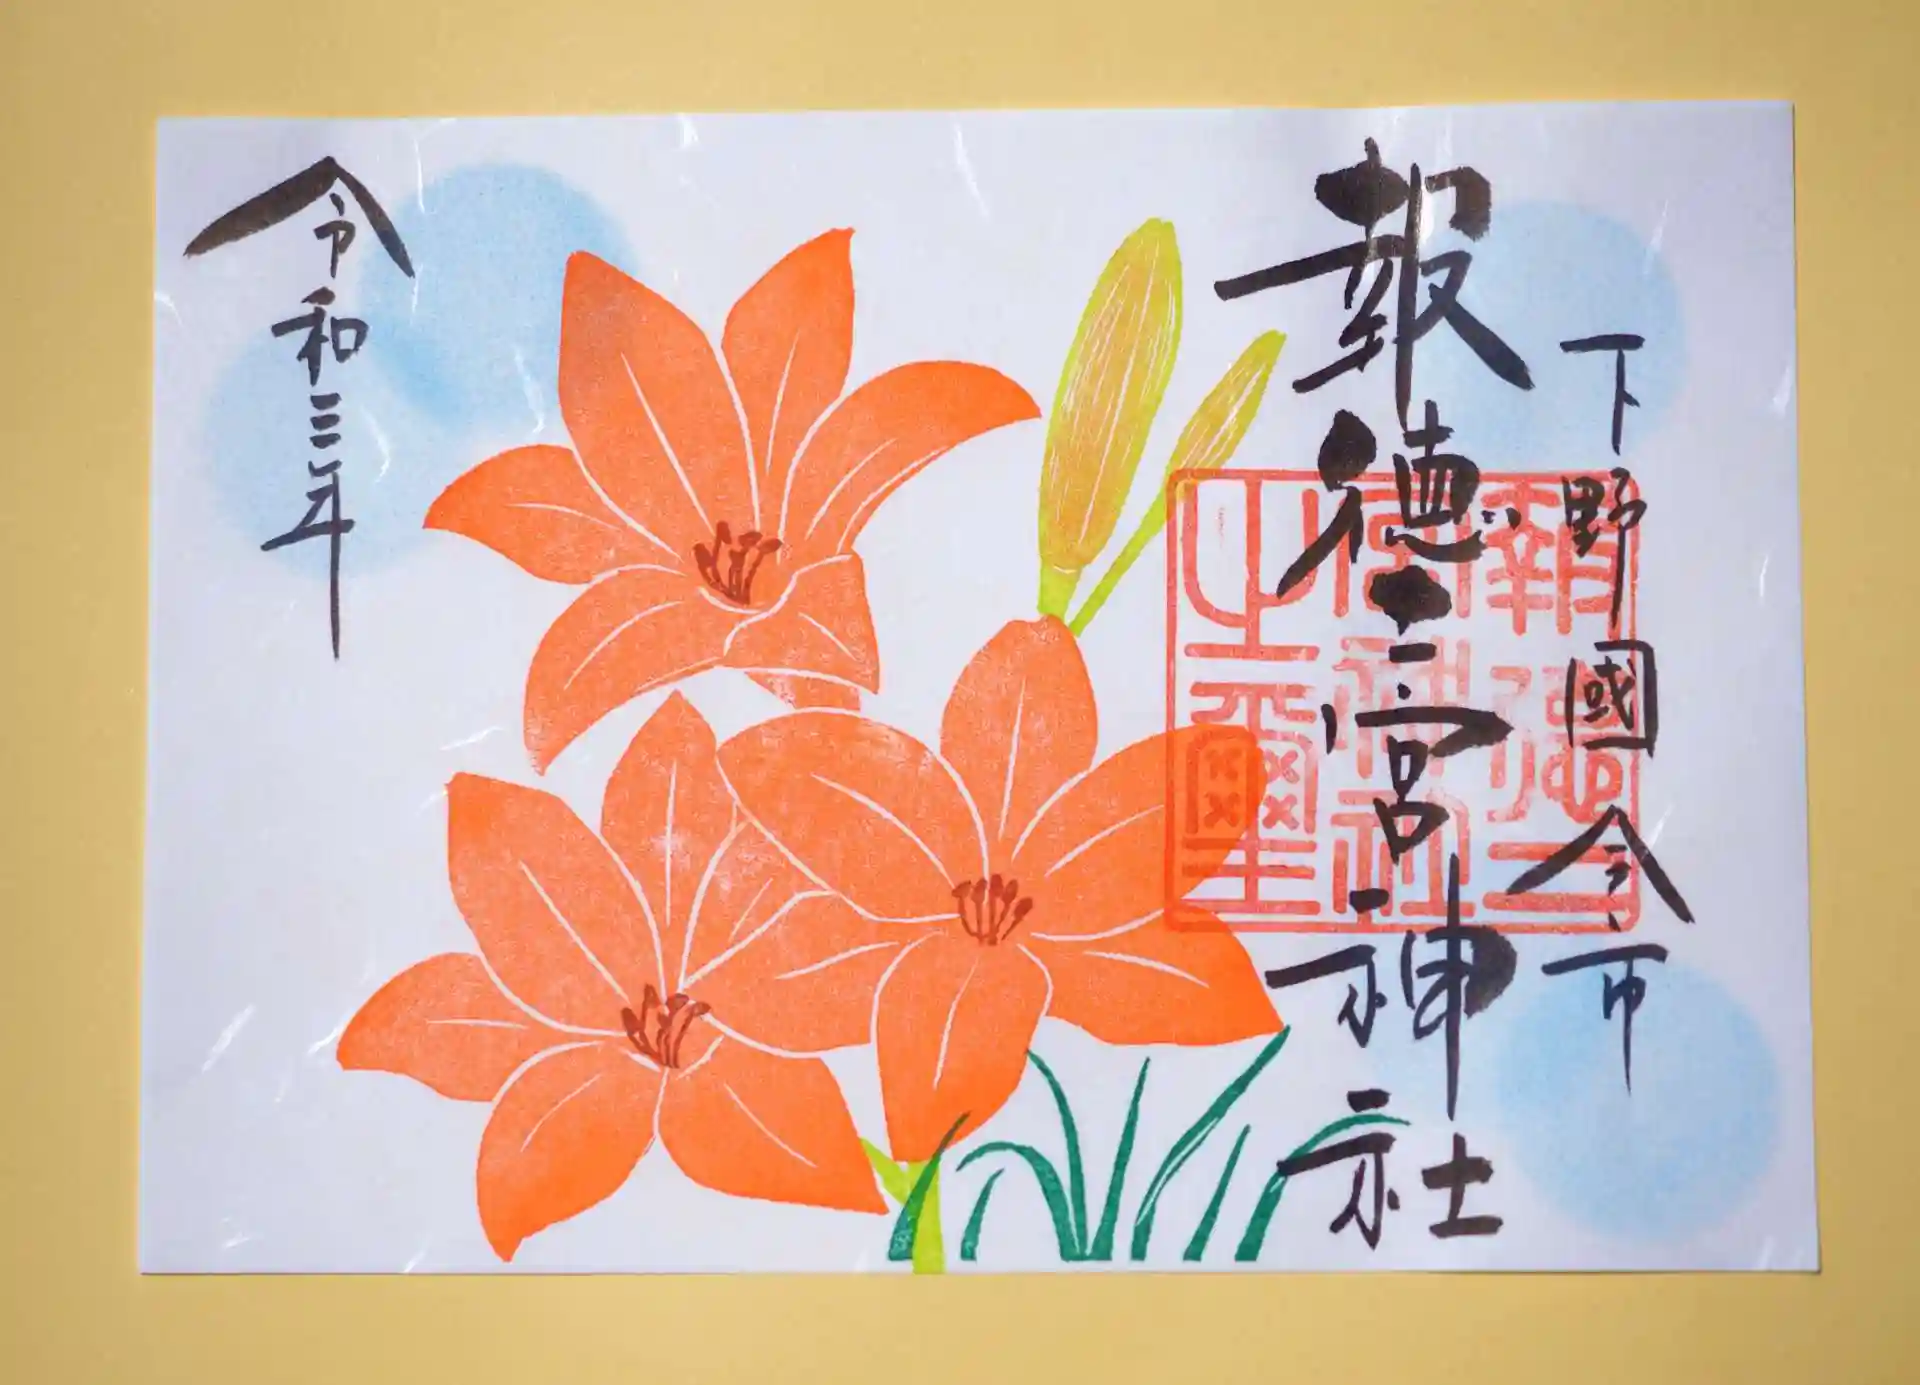 下野國今市
報徳二宮神社
報徳二
宮神社
之璽
令和三年